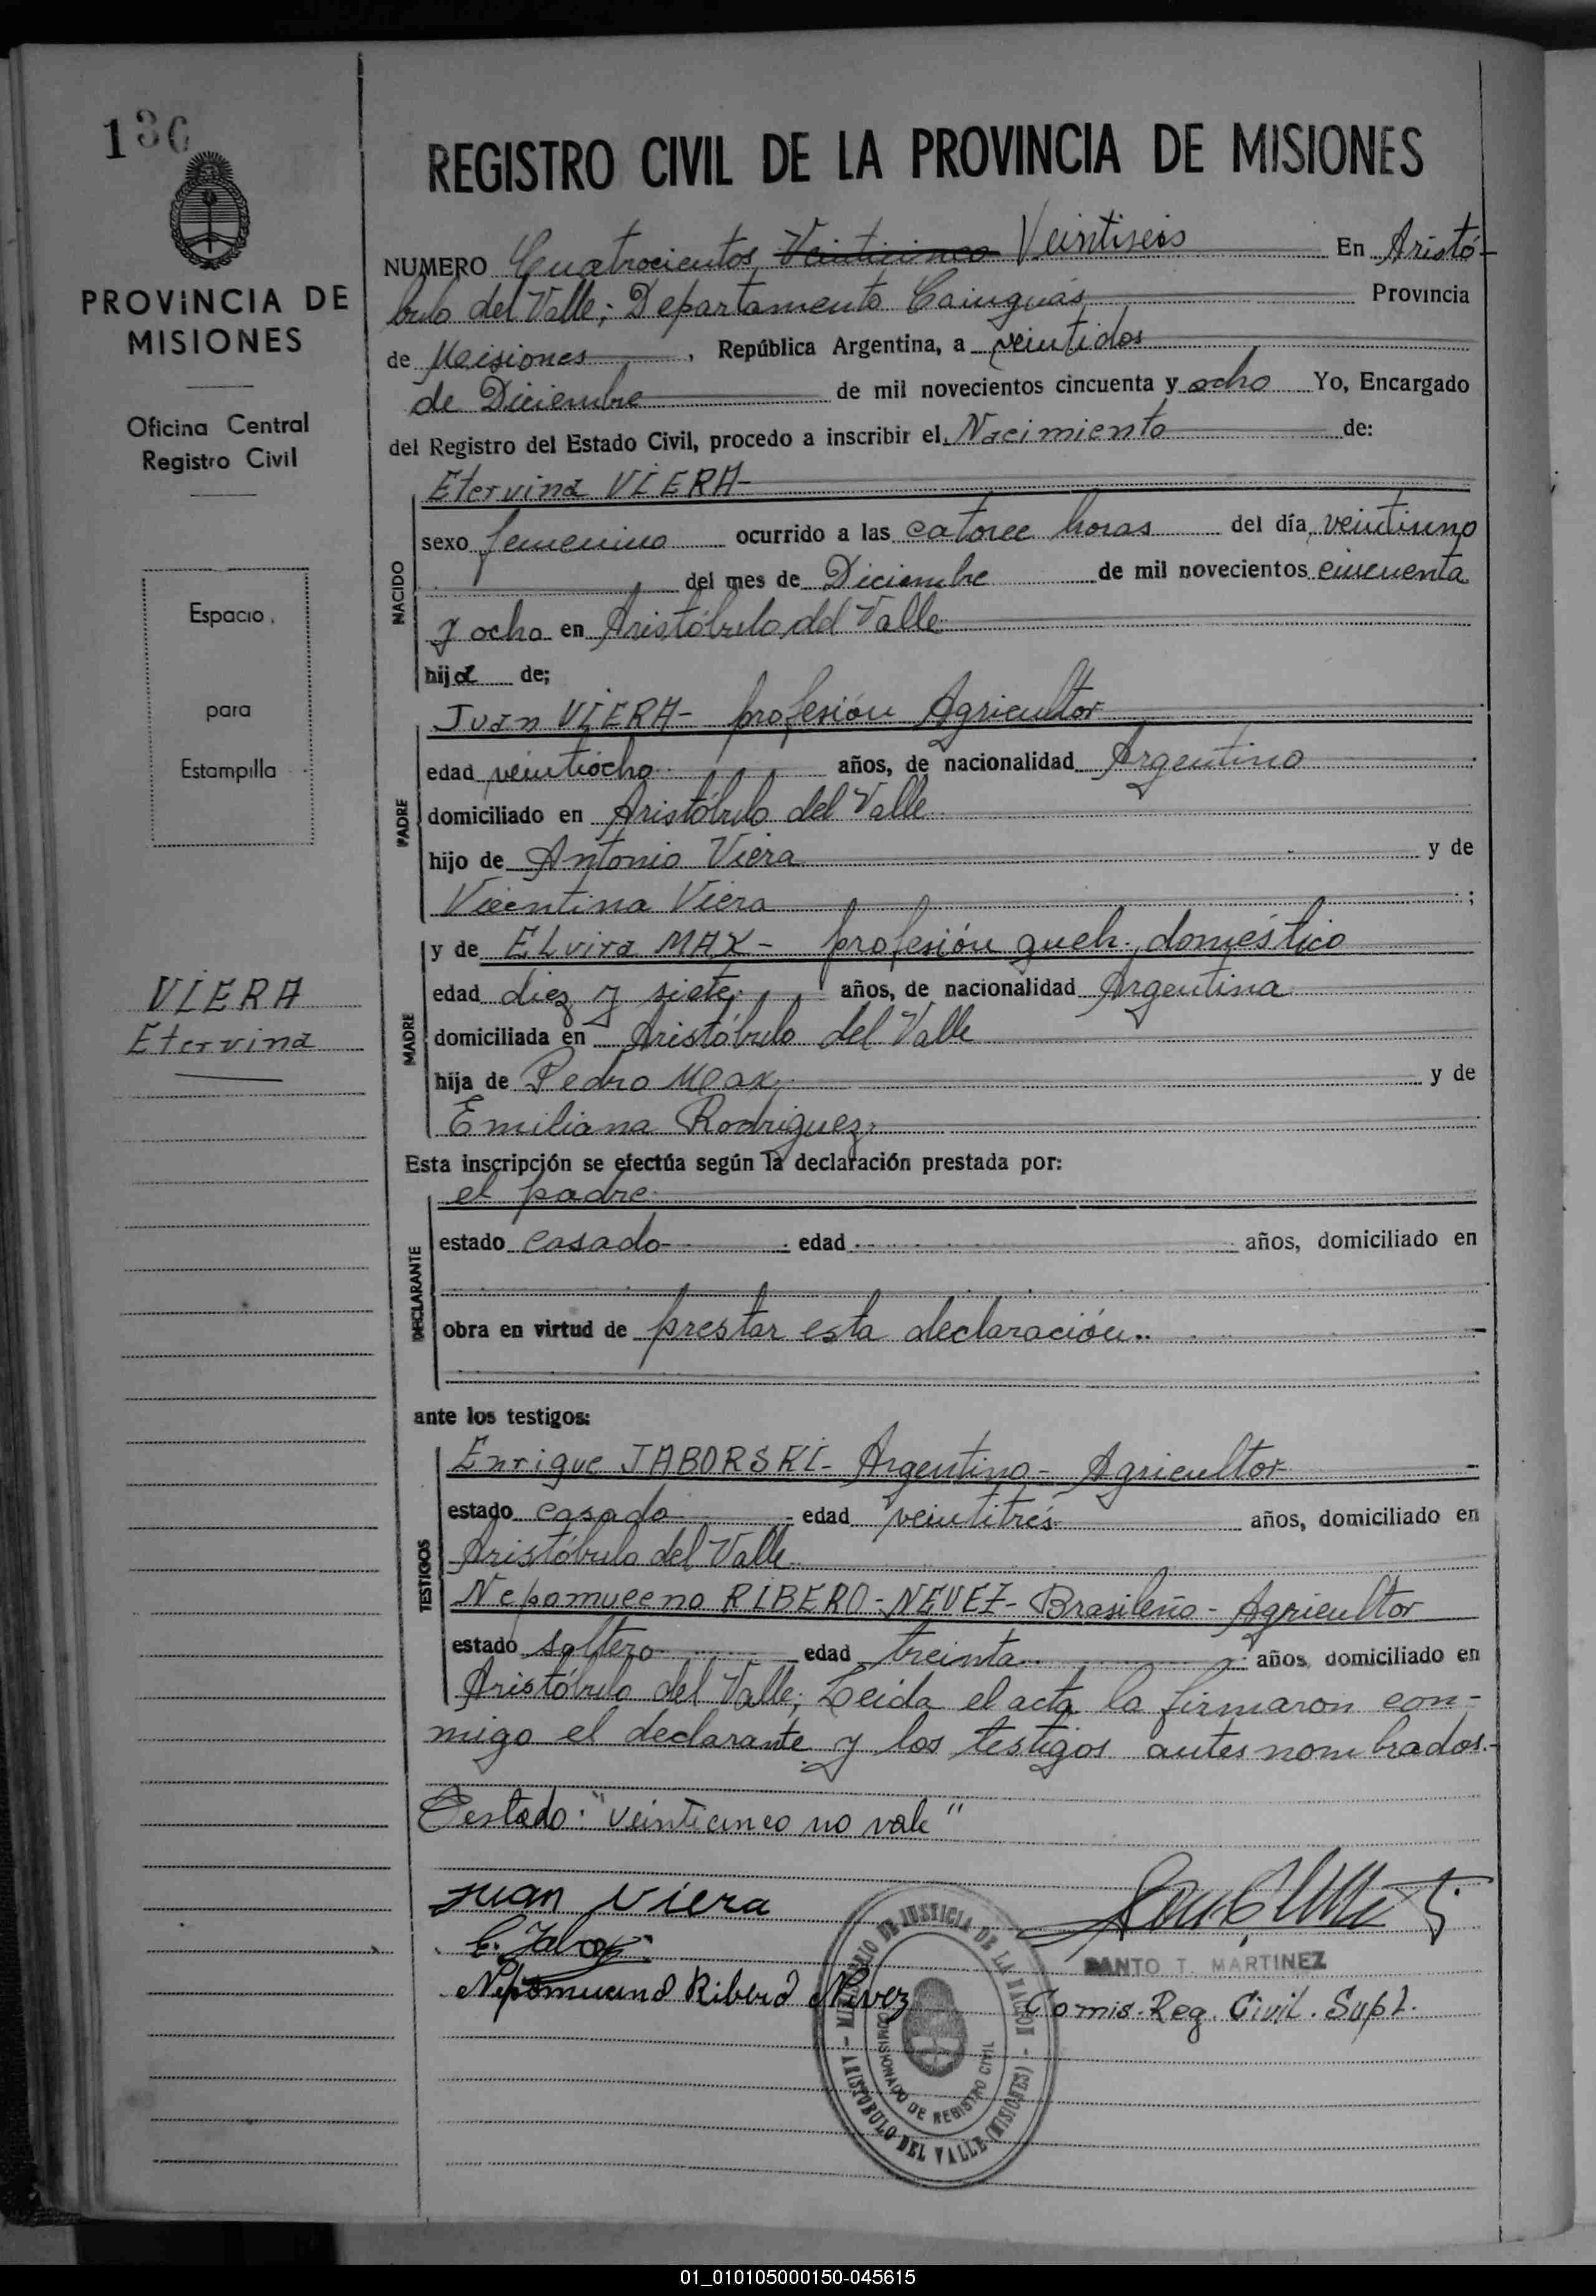 136
PROVINCIA DE
MISIONES
Oficina Central
Registro Civil
Espacio
para
Estampilla
VIERA
Etervina
REGISTRO CIVIL DE LA PROVINCIA DE MISIONES
NUMERO Cuatrocientos Veinticinco Veintiseis En Aristó-
bulo del Valle; Departamento Cainguás Provincia
de Misiones, República Argentina, a veintidos
de Diciembre de mil novecientos cincuenta y ocho Yo, Encargado
del Registro del Estado Civil, procedo a inscribir el Nacimiento de:
NACIDO
Etervina VIERA-
sexo femenino ocurrido a las catorce horas del día veintiuno
del mes de Diciembre de mil novecientos cincuenta
y ocho en Aristóbulo del Valle
hija de;
PADRE
Juan VIERA- profesión Agricultor
edad veintiocho años, de nacionalidad Argentino
domiciliado en Aristóbulo del Valle
hijo de Antonio Viera y de
Vicentina Viera ;
MADRE
y de ELvira MAX- profesión queh. doméstico
edad diez y siete años, de nacionalidad Argentina
domiciliada en Aristóbulo del Valle
hija de Pedro Max y de
Emiliana Rodriguez
Esta inscripción se efectúa según la declaración prestada por:
DECLARANTE
el padre
estado casado edad años, domiciliado en
obra en virtud de prestar esta declaración..
ante los testigos:
TESTIGOS
Enrique JABORSKI- Argentino- Agricultor
estado casado edad veintitrés años, domiciliado en
Aristóbulo del Valle
Nepomuceno RIBERO-NEVEZ- Brasileño- Agricultor
estado soltero edad treinta años, domiciliado en
Aristóbulo del Valle; Leida el acta la firmaron con-
migo el declarante y los testigos antes nombrados.-
Testado: "veinticinco no vale"
Juan Viera
Nepomuceno Ribero Nevez
SANTO T. MARTINEZ
Comis. Reg. Civil. Supl.
MINISTERIO DE JUSTICIA DE LA NACION
COMISIONADO DE REGISTRO CIVIL
- ARISTOBULO DEL VALLE (MISIONES) -
01_010105000150-045615